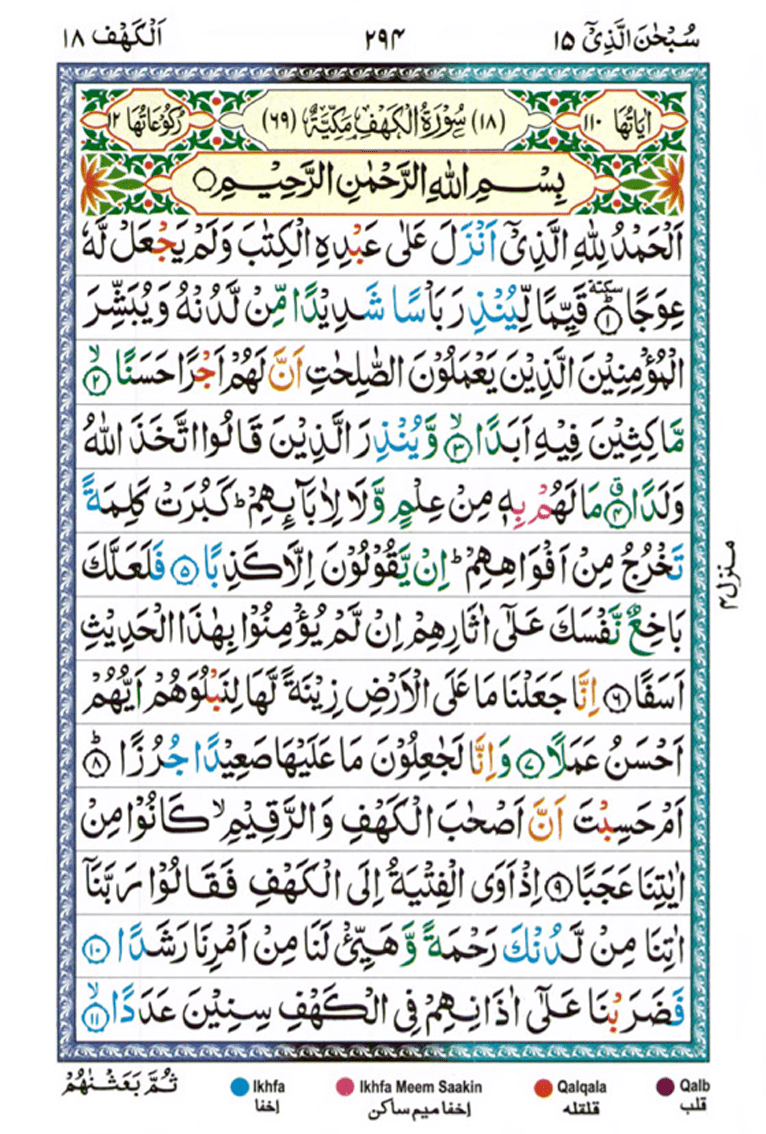 سُبْحٰنَ الَّذِیْۤ ١٥ ٢٩٤ اَلْكَهْف ١٨
اٰیَاتُهَا ١١٠ (١٨) سُوْرَةُ الْكَهْفِ مَكِّیَّةٌ (٦٩) رُكُوْعَاتُهَا ١٢
بِسْمِ اللهِ الرَّحْمٰنِ الرَّحِیْمِ ○
اَلْحَمْدُ لِلّٰهِ الَّذِیْۤ اَنْزَلَ عَلٰی عَبْدِهِ الْكِتٰبَ وَلَمْ یَجْعَلْ لَّهٗ
عِوَجًا ؕ سكتة ١ قَیِّمًا لِّیُنْذِرَ بَاْسًا شَدِیْدًا مِّنْ لَّدُنْهُ وَیُبَشِّرَ
الْمُؤْمِنِیْنَ الَّذِیْنَ یَعْمَلُوْنَ الصّٰلِحٰتِ اَنَّ لَهُمْ اَجْرًا حَسَنًا ۙ ٢
مَّاكِثِیْنَ فِیْهِ اَبَدًا ۙ ٣ وَّیُنْذِرَ الَّذِیْنَ قَالُوا اتَّخَذَ اللهُ
وَلَدًا ۗ ٤ مَا لَهُمْ بِهٖ مِنْ عِلْمٍ وَّلَا لِاٰبَآىِٕهِمْ ؕ كَبُرَتْ كَلِمَةً
تَخْرُجُ مِنْ اَفْوَاهِهِمْ ؕ اِنْ یَّقُوْلُوْنَ اِلَّا كَذِبًا ٥ فَلَعَلَّكَ
بَاخِعٌ نَّفْسَكَ عَلٰۤی اٰثَارِهِمْ اِنْ لَّمْ یُؤْمِنُوْا بِهٰذَا الْحَدِیْثِ
اَسَفًا ٦ اِنَّا جَعَلْنَا مَا عَلَی الْاَرْضِ زِیْنَةً لَّهَا لِنَبْلُوَهُمْ اَیُّهُمْ
اَحْسَنُ عَمَلًا ٧ وَاِنَّا لَجٰعِلُوْنَ مَا عَلَیْهَا صَعِیْدًا جُرُزًا ؕ ٨
اَمْ حَسِبْتَ اَنَّ اَصْحٰبَ الْكَهْفِ وَالرَّقِیْمِ ۙ كَانُوْا مِنْ
اٰیٰتِنَا عَجَبًا ٩ اِذْ اَوَی الْفِتْیَةُ اِلَی الْكَهْفِ فَقَالُوْا رَبَّنَاۤ
اٰتِنَا مِنْ لَّدُنْكَ رَحْمَةً وَّهَیِّئْ لَنَا مِنْ اَمْرِنَا رَشَدًا ١٠
فَضَرَبْنَا عَلٰۤی اٰذَانِهِمْ فِی الْكَهْفِ سِنِیْنَ عَدَدًا ۙ ١١
منزل ٤
ثُمَّ بَعَثْنٰهُمْ
Ikhfa Ikhfa Meem Saakin Qalqala Qalb
اخفا اخفا میم ساکن قلقله قلب